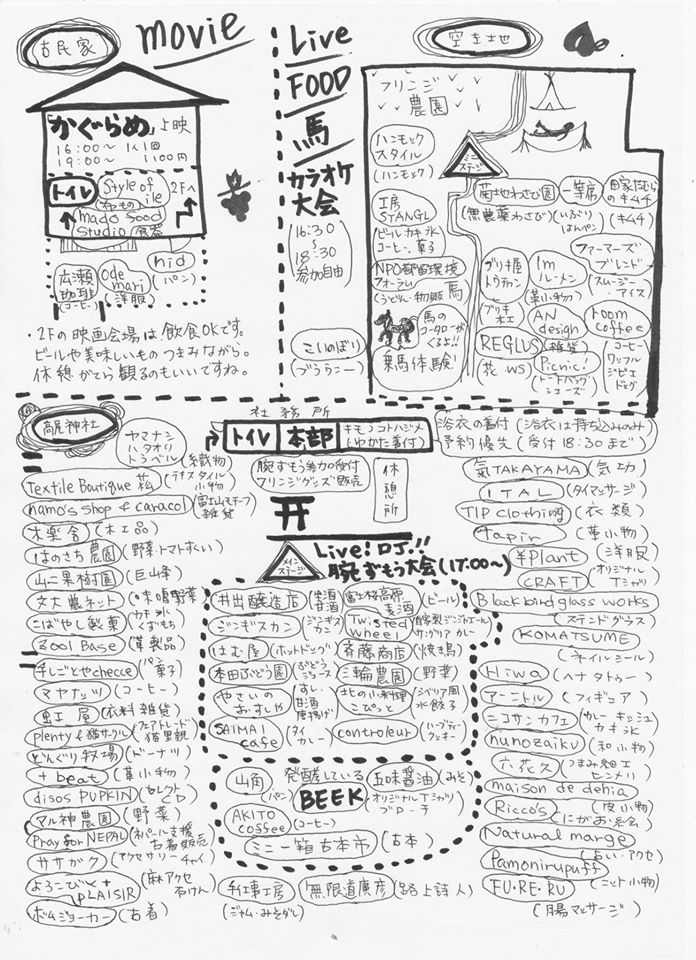 古民家
movie
「かぐらめ」上映
16:00〜 1人1回
19:00〜 1100円
トイレ
Style of
ile
(きもの)
2F へ
mado sood
studio (食器)
nid
(パン)
広瀬
珈琲
(コーヒー)
ode
mari
(洋服)
・2Fの映画会場は、飲食OKです。
ビールや美味しいものつまみながら。
休憩がてら観るのもいいですね。
Live
FOOD
馬
カラオケ
大会
(16:30
〜
18:30
参加自由)
こいのぼり
空き地
フリンジ
農園
ミニ
ステージ
ハンモック
スタイル
(ハンモック)
工房
STANGL
ビール カキ氷
コーヒー、菓子
NPO都留環境
フォーラム
(うどん・物販 馬)
馬の
コータローが
くるよ!!
乗馬体験!
菊地わさび園
(無農薬わさび)
一等席
(いぶり
はんぺん)
田家だむらの
キムチ
(キムチ)
ファーマーズ
ブレンド
(スムージー
アイス)
ブリキ屋
トウカン
ブリキ
木工
1m
ルーメン
(革小物)
AN
design
(雑貨)
room
coffee
コーヒー
ワッフル
ジビエ
ドッグ
REGLUS
(花 WS)
Picnic!
(トートバッグ
シューズ)
高尾神社
社務所
トイレ
本部
キモノコトハジメ
(ゆかた着付)
浴衣の着付 (浴衣は持ち込みのみ
予約優先 (受付18:30まで)
腕ずもう参加受付
フリンジグッズ販売
休憩所
メイン
ステージ
Live! DJ!!
腕ずもう大会(17:00〜)
ヤマナシ
ハタオリ
トラベル
(織物)
Textile Boutique 菘
(テキスタイル
小物)
namo's shop & caracol
(富士山モチーフ
雑貨)
木楽舎 (木工品)
はのさち農園 (野菜・トマトすくい)
山二果樹園 (巨山峰)
文大農ネット (味噌野菜)
こばやし製菓 (カキ氷
くずもち)
Zool Base (革製品)
手しごとや checce (パン
菓子)
マヤナッツ (コーヒー)
虹屋 (衣料 雑貨)
plenty & 猫サークル (フェアトレード
猫里親)
どんぐり牧場 (ドーナツ)
+ beat (革小物)
disos PUPKIN (セレクト
CD)
マル神農園 (野菜)
Pray for NEPAL (ネパール支援
古着販売)
ササガク (アクセサリー チャイ)
よろこびと
PLAISIR
(麻 アクセ
石けん)
ボムジョーカー (古着)
井出醸造店 (甘酒)
富士桜高原
麦酒
(ビール)
ジンギスカン (ジンギス
カン)
Twisted
wheel
(自家製ジンジャエール
サングリア カレー)
はむ屋 (ホットドッグ)
斉藤商店 (焼き鳥)
本田ぶどう園 (ぶどう
ジュース)
三輪農園 (野菜)
やさいの
おすしや
(すし、
甘酒
唐揚げ)
土との小料理
こぴっと
(シベリア風
水餃子)
SAIMAI
cafe
(タイ
カレー)
controleur
(ハーブティー
クッキー)
山角
(パン)
発酵している
BEEK
五味醤油 (みそ)
オリジナルTシャツ
ブローチ
AKITO
coffee
(コーヒー)
ミニ一箱古本市 (古本)
紅車工房
(ジャム・みそダレ)
無限道廣彦 (路上詩人)
氣TAKAYAMA (気功)
ITAL (タイマッサージ)
TIP clothing (衣類)
tapir (革小物)
¥Plant (洋服)
CRAFT (オリジナル
Tシャツ)
Blackbird glass works
(ステンドグラス)
KOMATSUME
(ネイルシール)
Hiwa (ヘナタトゥー)
アーニトル (フィギュア)
ニコサンカフェ (カレー キッシュ
カキ氷)
nunozaiku (和小物)
六花久 (つまみ細工
ヒンメリ)
maison de dehia
(皮小物)
Ricco's (にがお絵会)
Natural marge
(占い・アクセ)
Pamonirupuff
(ニット小物)
FU・RE・RU
(腸マッサージ)